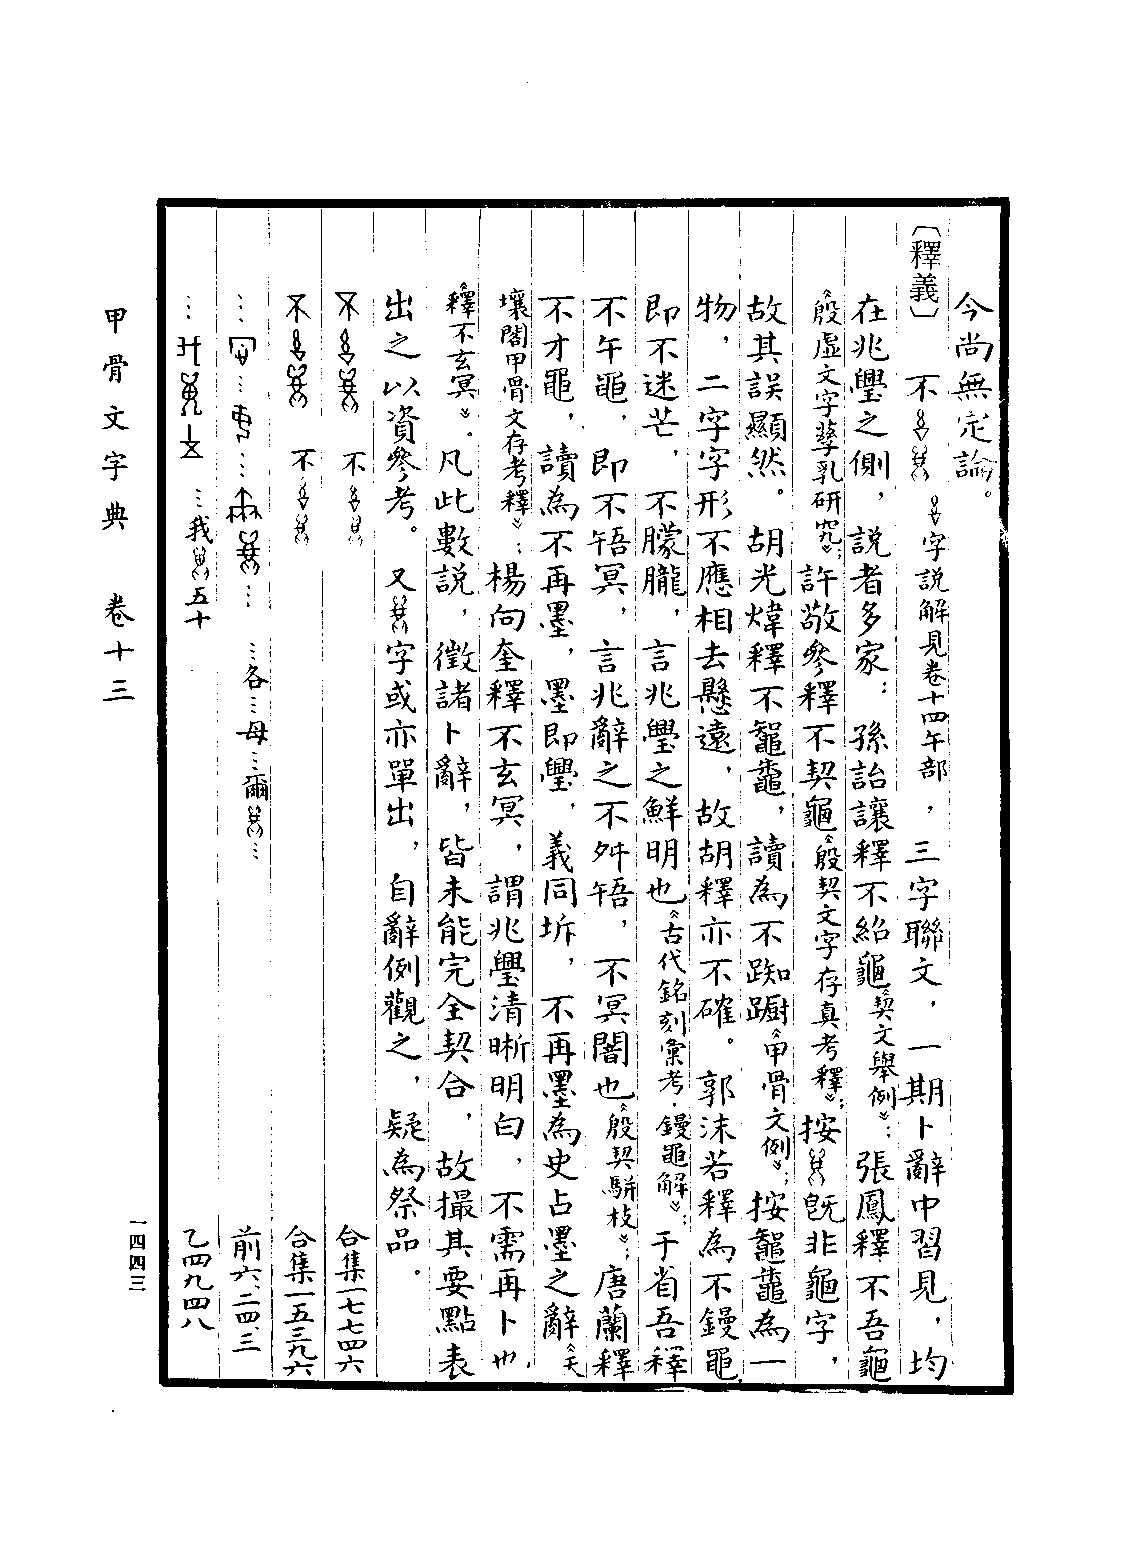 今尚無定論。
〔釋義〕 不 字說解見卷十四午部，三字聯文，一期卜辭中習見，均
在兆璺之側，說者多家：孫詒讓釋不紹龜《契文舉例》；張鳳釋不吾龜
《殷虛文字孳乳研究》；許敬參釋不契龜《殷契文字存真考釋》；按 既非龜字，
故其誤顯然。胡光煒釋不鼅鼄，讀為不踟躕《甲骨文例》；按鼅鼄為一
物，二字字形不應相去懸遠，故胡釋亦不確。郭沫若釋為不鏝黽
即不迷芒，不朦朧，言兆璺之鮮明也《古代銘刻彙考·鏝黽解》；于省吾釋
不午黽，即不啎冥，言兆辭之不舛啎，不冥闇也《殷契駢枝》；唐蘭釋
不才黽，讀為不再墨，墨即璺，義同坼，不再墨為史占墨之辭《天
壤閣甲骨文存考釋》；楊向奎釋不玄冥，謂兆璺清晰明白，不需再卜也
《釋不玄冥》。凡此數說，徵諸卜辭，皆未能完全契合，故撮其要點表
出之以資參考。又 字或亦單出，自辭例觀之，疑為祭品。
不 合集一七七四六
不 合集一五三九六
…各…母…爾 … 前六、二四、三
…我 五十 乙四九四八
甲骨文字典 卷十三
一四四三